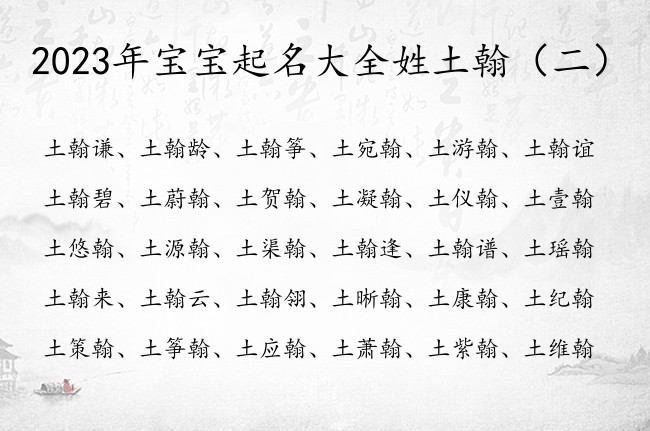 2023年宝宝起名大全姓土翰（二）
土翰谦、土翰龄、土翰筝、土宛翰、土游翰、土翰谊
土翰碧、土蔚翰、土贺翰、土凝翰、土仪翰、土壹翰
土悠翰、土源翰、土渠翰、土翰逢、土翰谱、土瑶翰
土翰来、土翰云、土翰翎、土晰翰、土康翰、土纪翰
土策翰、土筝翰、土应翰、土萧翰、土紫翰、土维翰